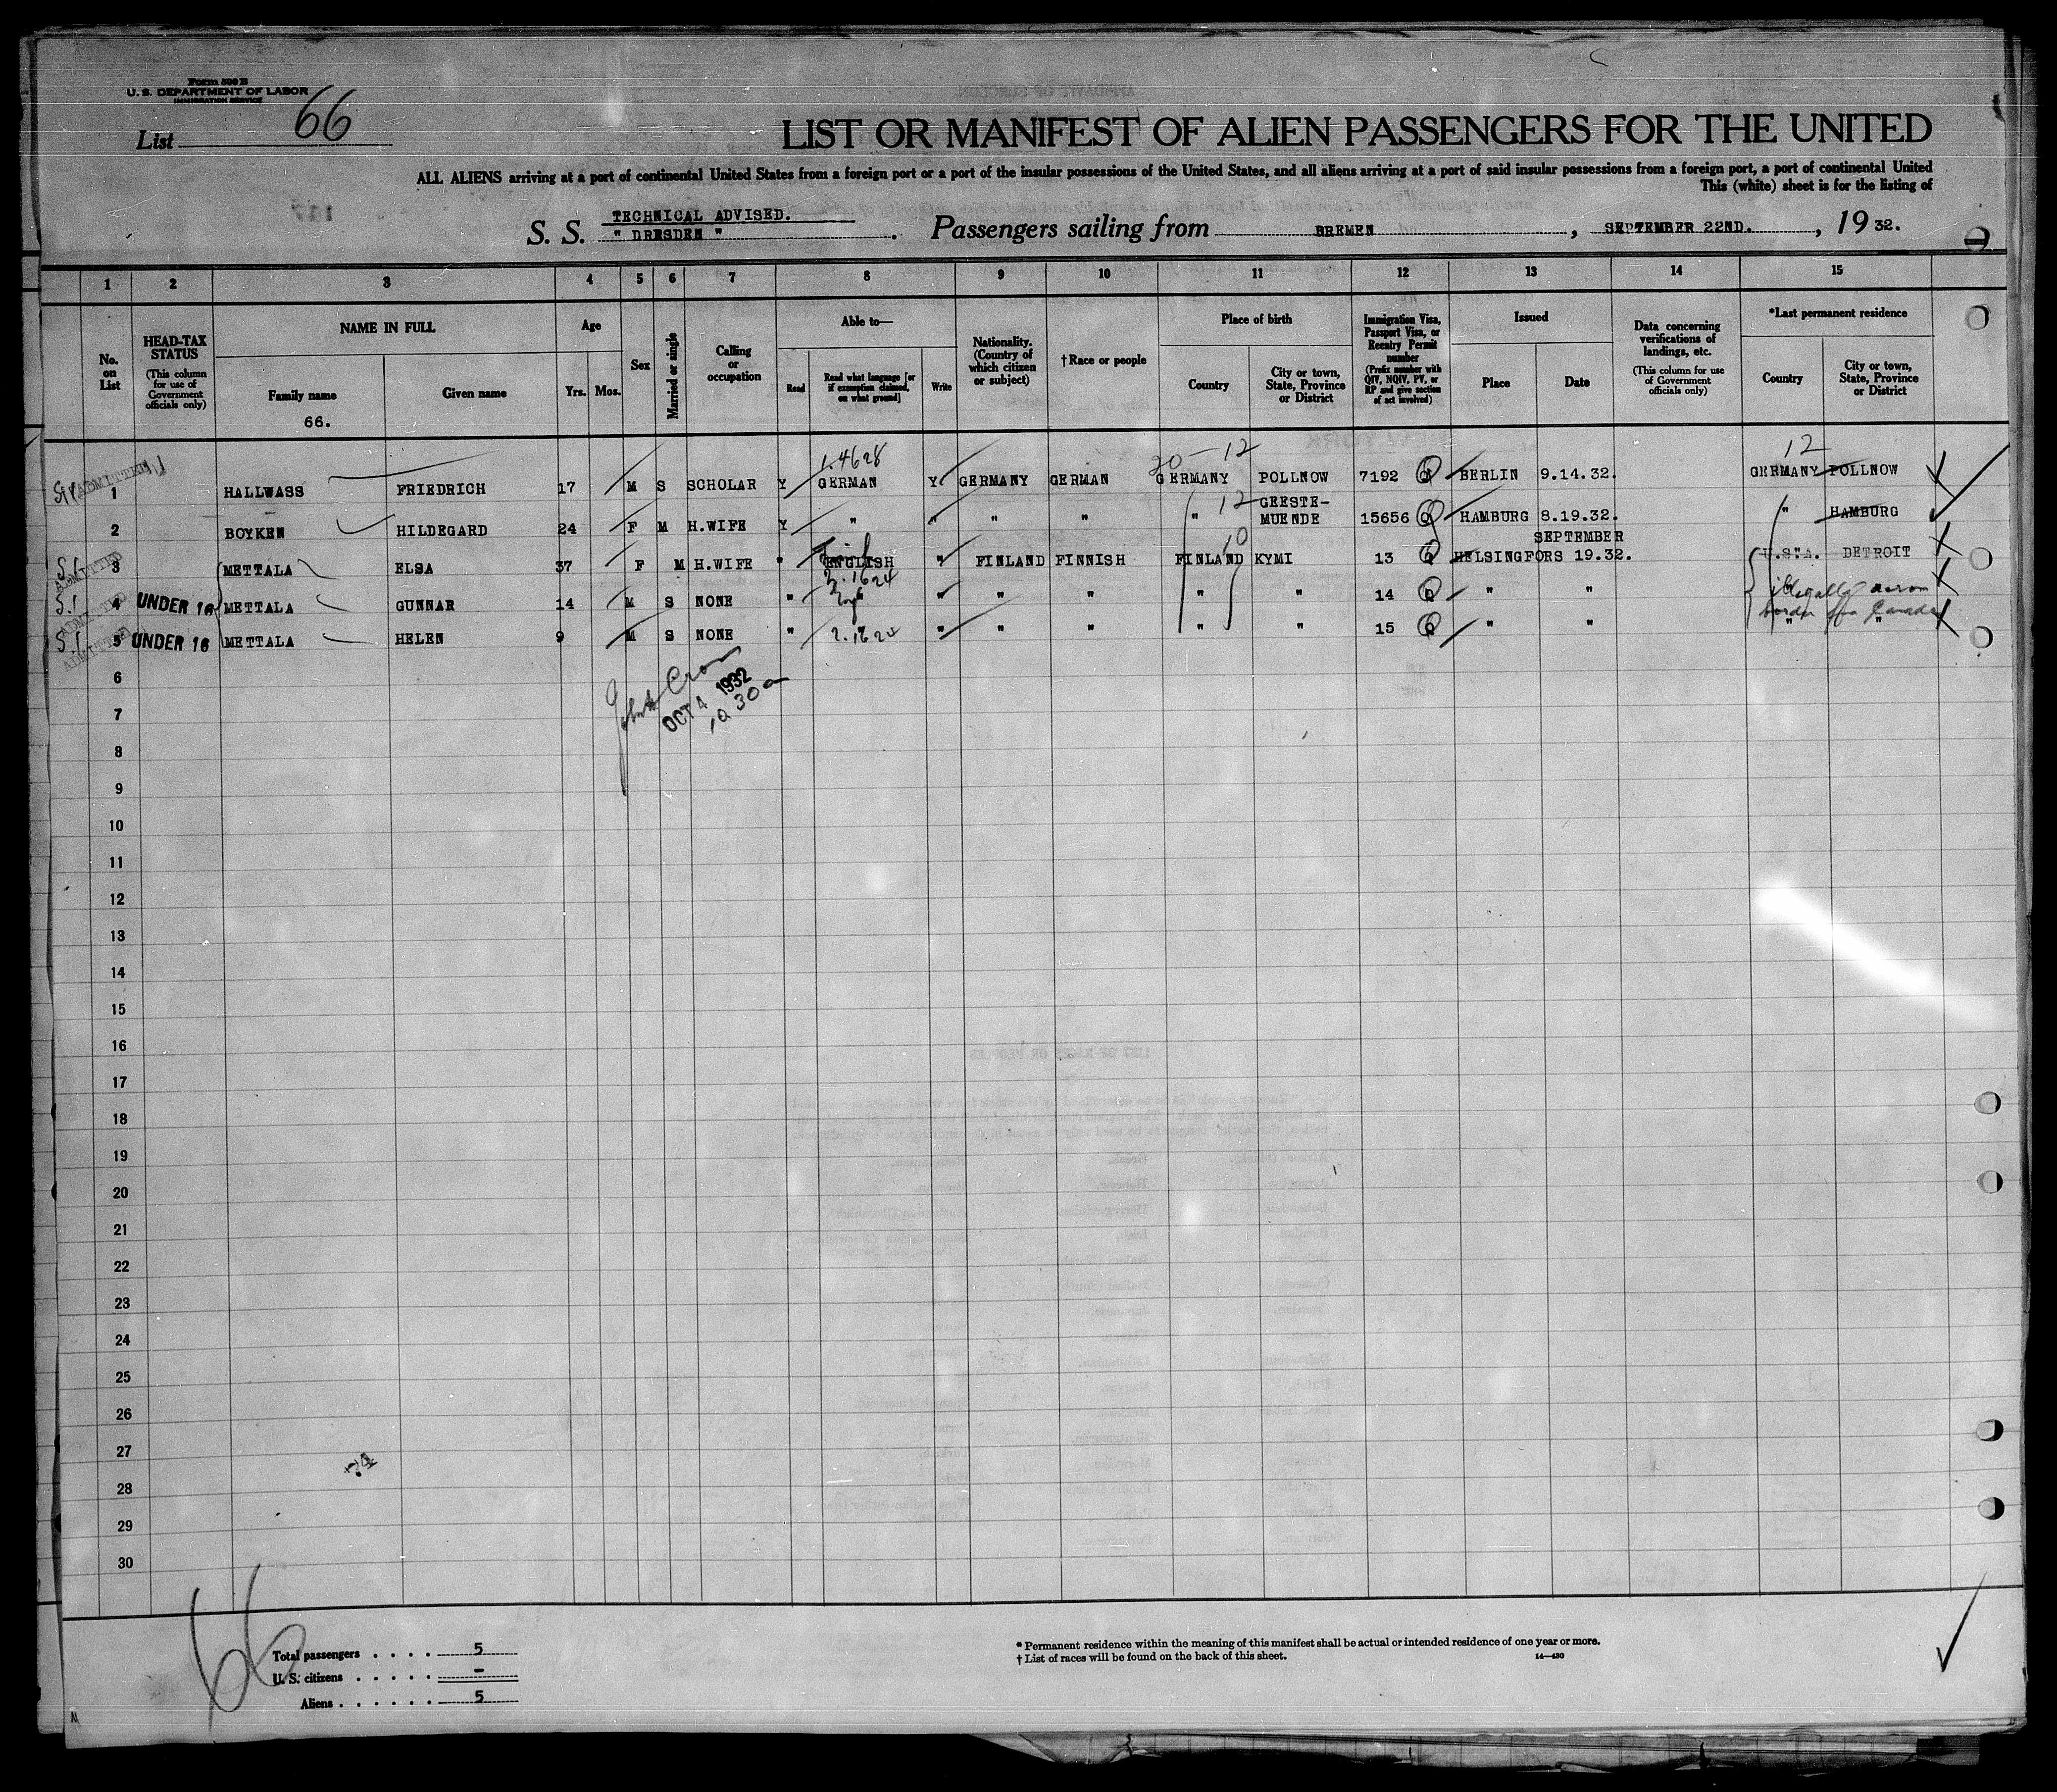 Form 500 B
U. S. DEPARTMENT OF LABOR
IMMIGRATION SERVICE
List 66
LIST OR MANIFEST OF ALIEN PASSENGERS FOR THE UNITED
ALL ALIENS arriving at a port of continental United States from a foreign port or a port of the insular possessions of the United States, and all aliens arriving at a port of said insular possessions from a foreign port, a port of continental United
This (white) sheet is for the listing of
TECHNICAL ADVISED.
S. S. " DRESDEN " . Passengers sailing from BREMEN , SEPTEMBER 22ND. , 19 32.
1 2 3 4 5 6 7 8 9 10 11 12 13 14 15
No. on List
HEAD-TAX STATUS (This column for use of Government officials only)
NAME IN FULL
Family name
66.
Given name
Age
Yrs. Mos.
Sex
Married or single
Calling or occupation
Able to—
Read
Read what language [or if exemption claimed, on what ground]
Write
Nationality. (Country of which citizen or subject)
†Race or people
Place of birth
Country
City or town, State, Province or District
Immigration Visa, Passport Visa, or Reentry Permit number (Prefix number with QIV, NQIV, PV, or RP and give section of act involved)
Issued
Place
Date
Data concerning verifications of landings, etc. (This column for use of Government officials only)
*Last permanent residence
Country
City or town, State, Province or District
1.4628 20-12 12
ADMITTED 1 HALLWASS FRIEDRICH 17 M S SCHOLAR Y GERMAN Y GERMANY GERMAN GERMANY POLLNOW 7192 Q BERLIN 9.14.32. GERMANY POLLNOW
2 BOYKEN HILDEGARD 24 F M H.WIFE Y " " " " " 12 GEESTE-MUENDE 15656 Q HAMBURG 8.19.32. " HAMBURG
S.I ADMITTED 3 METTALA ELSA 37 F M H.WIFE " ENGLISH " FINLAND FINNISH FINLAND 10 KYMI 13 Q HELSINGFORS SEPTEMBER 19.32. U.S.A. DETROIT
S.I ADMITTED 4 UNDER 16 METTALA GUNNAR 14 M S NONE " 2.1624 " " " " " 14 Q " " illegally across
S.I ADMITTED 5 UNDER 16 METTALA HELEN 9 M S NONE " 2.1624 " " " " " 15 Q " " border from Canada " "
6
7
OCT 4 1932
10 30 a
8
9
10
11
12
13
14
15
16
17
18
19
20
21
22
23
24
25
26
27
74
28
29
30
66
Total passengers . . . . 5
U. S. citizens . . . . . –
Aliens . . . . . . 5
* Permanent residence within the meaning of this manifest shall be actual or intended residence of one year or more.
† List of races will be found on the back of this sheet. 14—430